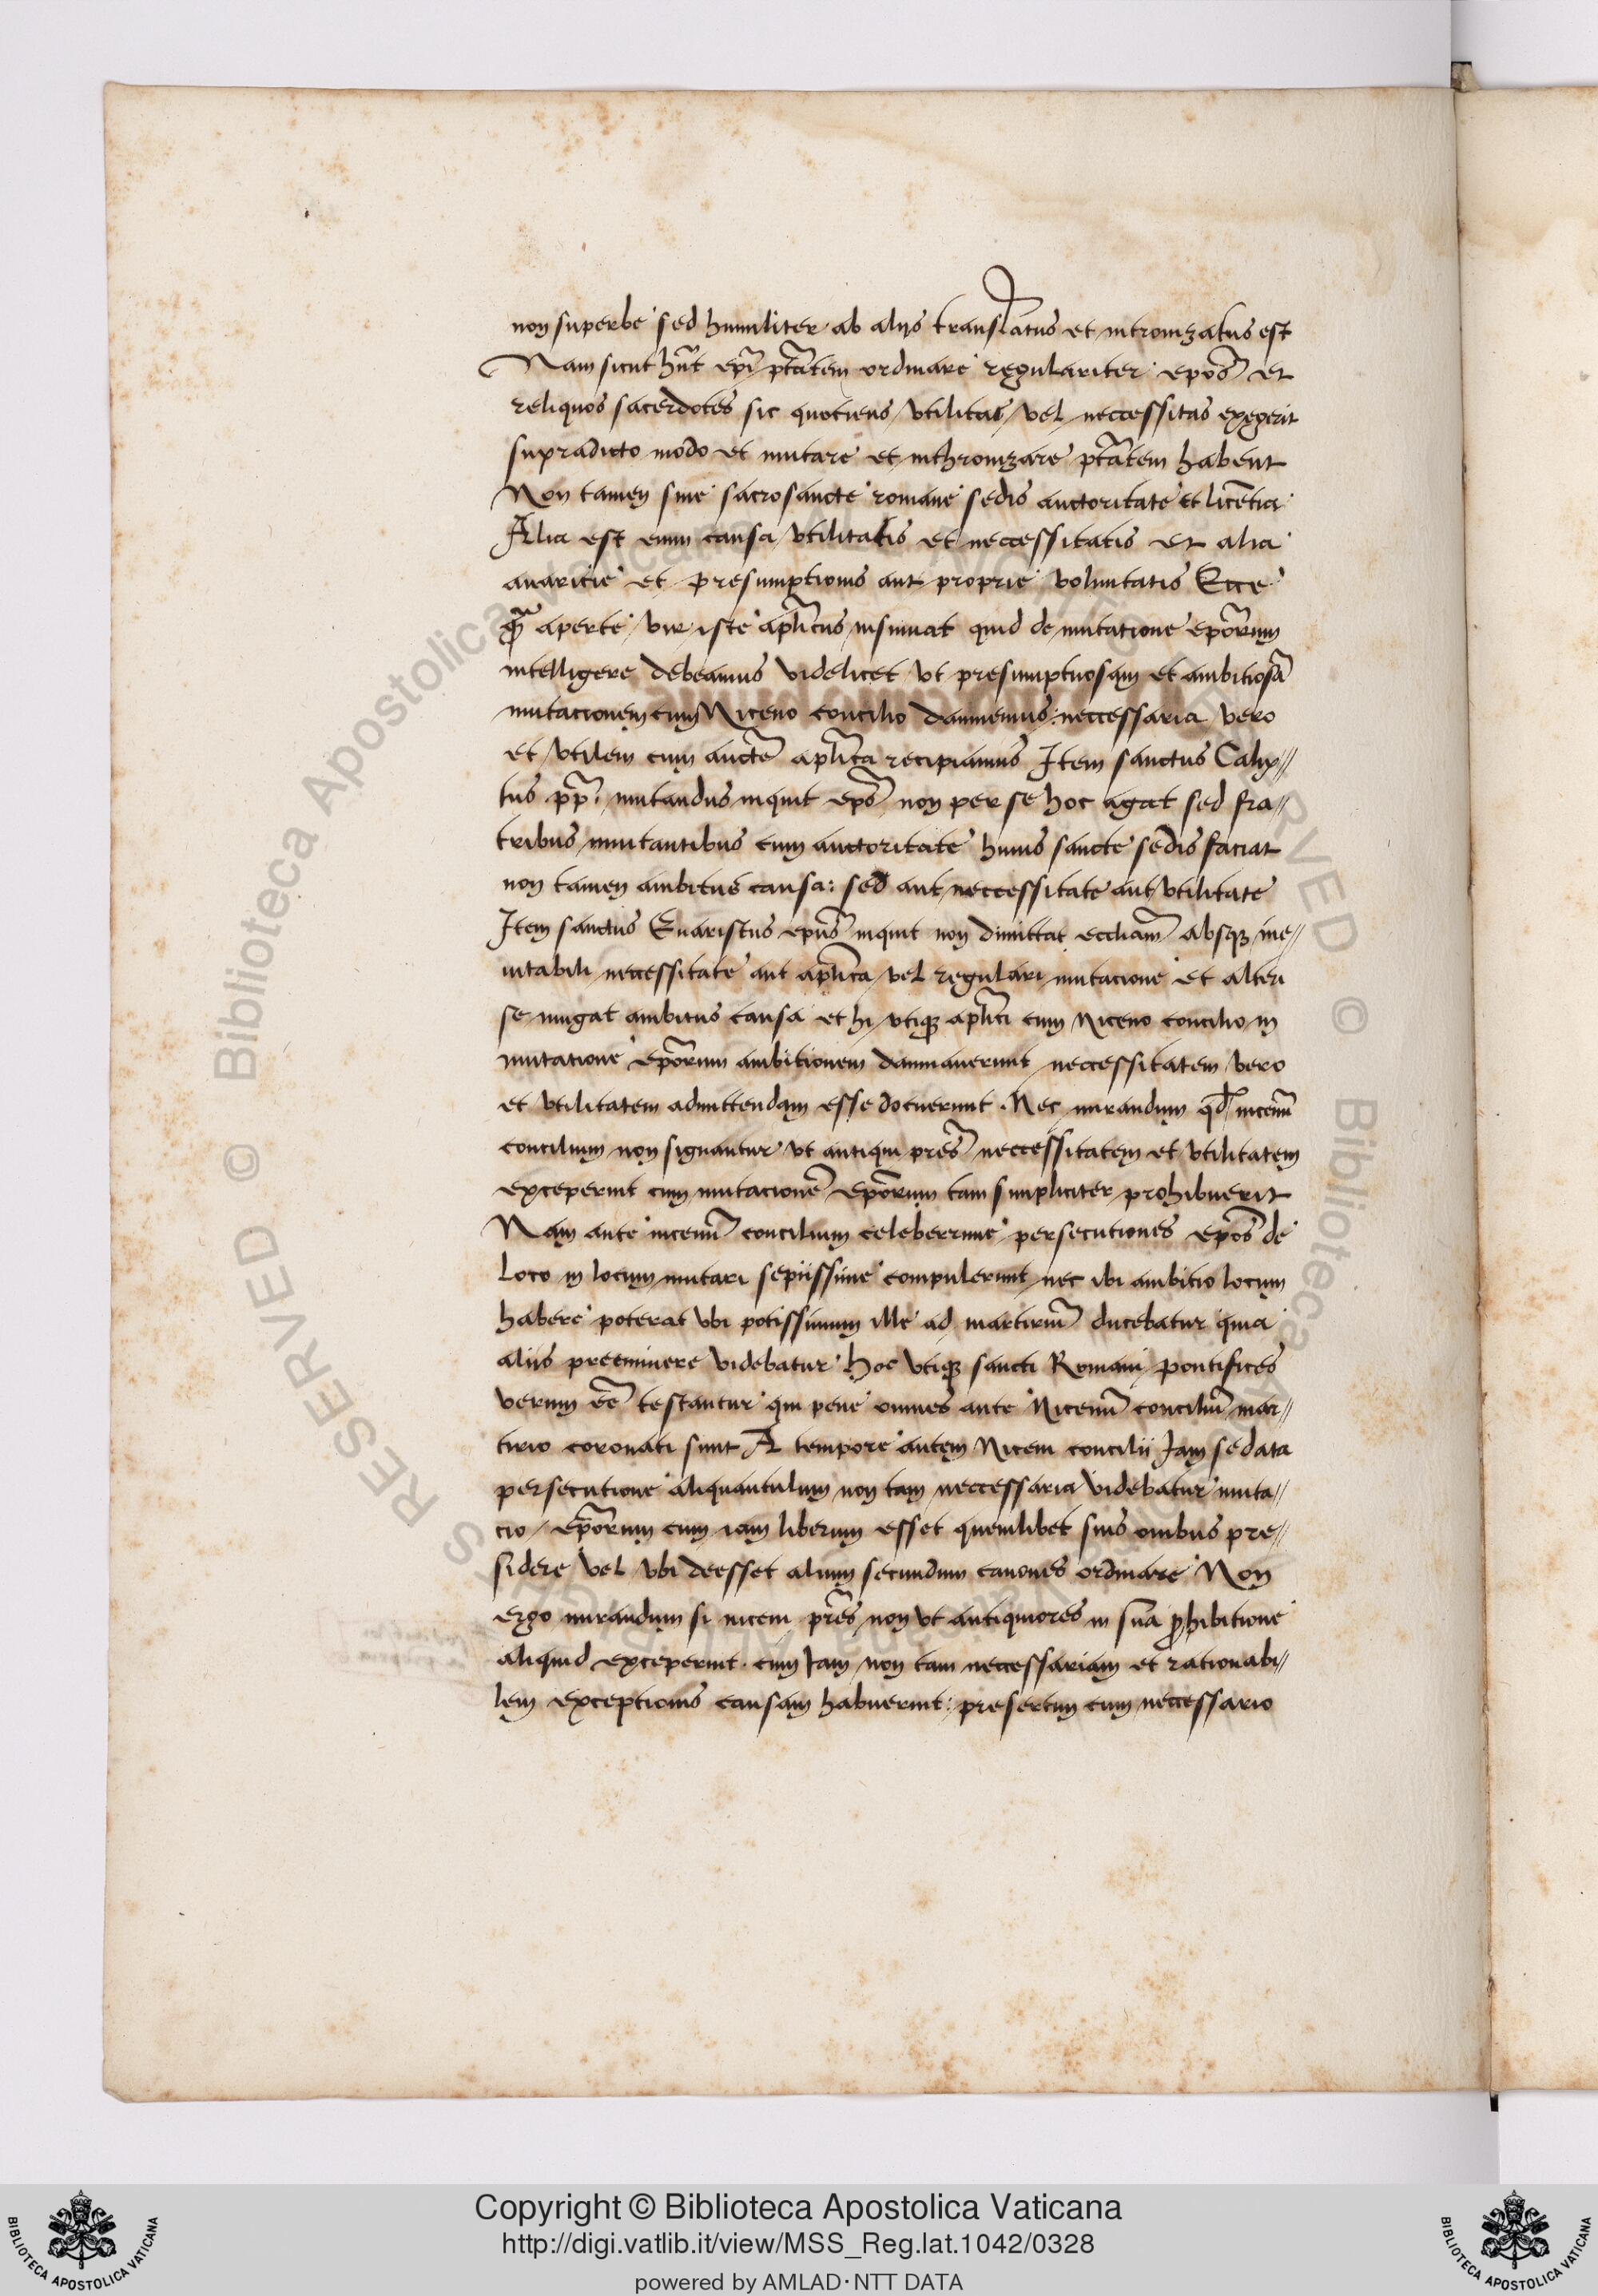 non superbe sed humiliter ab alijs translatus et intronizatus est
Nam sicut hñt epĩ ptãtem ordinare regulariter epõs et
reliquos sacerdotes sic quotiens utilitas vel neccessitas exegerit
supradicto modo et mutare et inthronizare ptãtem habent
Non tamen sine sacrosancte romane sedis auctoritate et licẽtia
Alia est enim causa utilitatis et neccessitatis et alia
avaricie et presumptionis aut proprie voluntatis Ecce
qã aperte vir iste aplĩcus insinuat quid de mutatione epõrum
intelligere debeamus videlicet ut presumptuosam et ambitiosã
mutacionem cum Niceno concilio damnemus: neccessaria vero
et utilem cum auctẽ aplĩca recipiamus Item sanctus Calix//
tus pp̃. mutandus inquit epũs non per se hoc agat sed fra//
tribus mutantibus cum auctoritate huius sancte sedis faciat
non tamen ambitus causa: sed aut neccessitate aut utilitate
Item sanctus Evaristus epũs inquit non dimittat eccliam̃ absq; ine//
vitabili neccessitate aut aplĩca vel regulari mutacione et alteri
se iungat ambitus causa et hi utiq; aplĩci cum Niceno concilio in
mutatione epõrum ambitionem damnaverunt neccessitatem vero
et utilitatem admittendam esse docuerunt. Nec mirandum qd̃ nicenũ
concilium non signantur ut antiqui prẽs neccessitatem et utilitatem
exceperint cum mutacionẽ epõrum tam simpliciter prohibuerit
Nam ante nicenũ concilium celeberrime persecutiones epõs de
loco in locum mutari sepiissime compulerunt nec ibi ambitio locum
habere poterat ubi potissimum ille ad martirium̃ ducebatur quia
aliis preeminere videbatur hoc utiq; sancti Romani pontifices
verum eẽ testantur qui pene omnes ante Nicenũ conciliũ mar//
tirio coronati sunt A tempore autem Niceni concilii Jam sedata
persecutione aliquantulum non tam neccessaria videbatur muta//
cio epõrum cum iam liberum esset quemlibet suis ovibus pre//
sidere vel ubi deesset alium secundum canones ordinare Non
ergo mirandum si niceni prẽs non ut antiquiores in suã ꝓhibitione
aliquid exceperint. cum Jam non tam neccessariam et rationabi//
lem exceptionis causam habuerint: presertim cum neccessario
Copyright © Biblioteca Apostolica Vaticana
http://digi.vatlib.it/view/MSS_Reg.lat.1042/0328
powered by AMLAD·NTT DATA
BIBLIOTECA APOSTOLICA VATICANA
BIBLIOTECA APOSTOLICA VATICANA